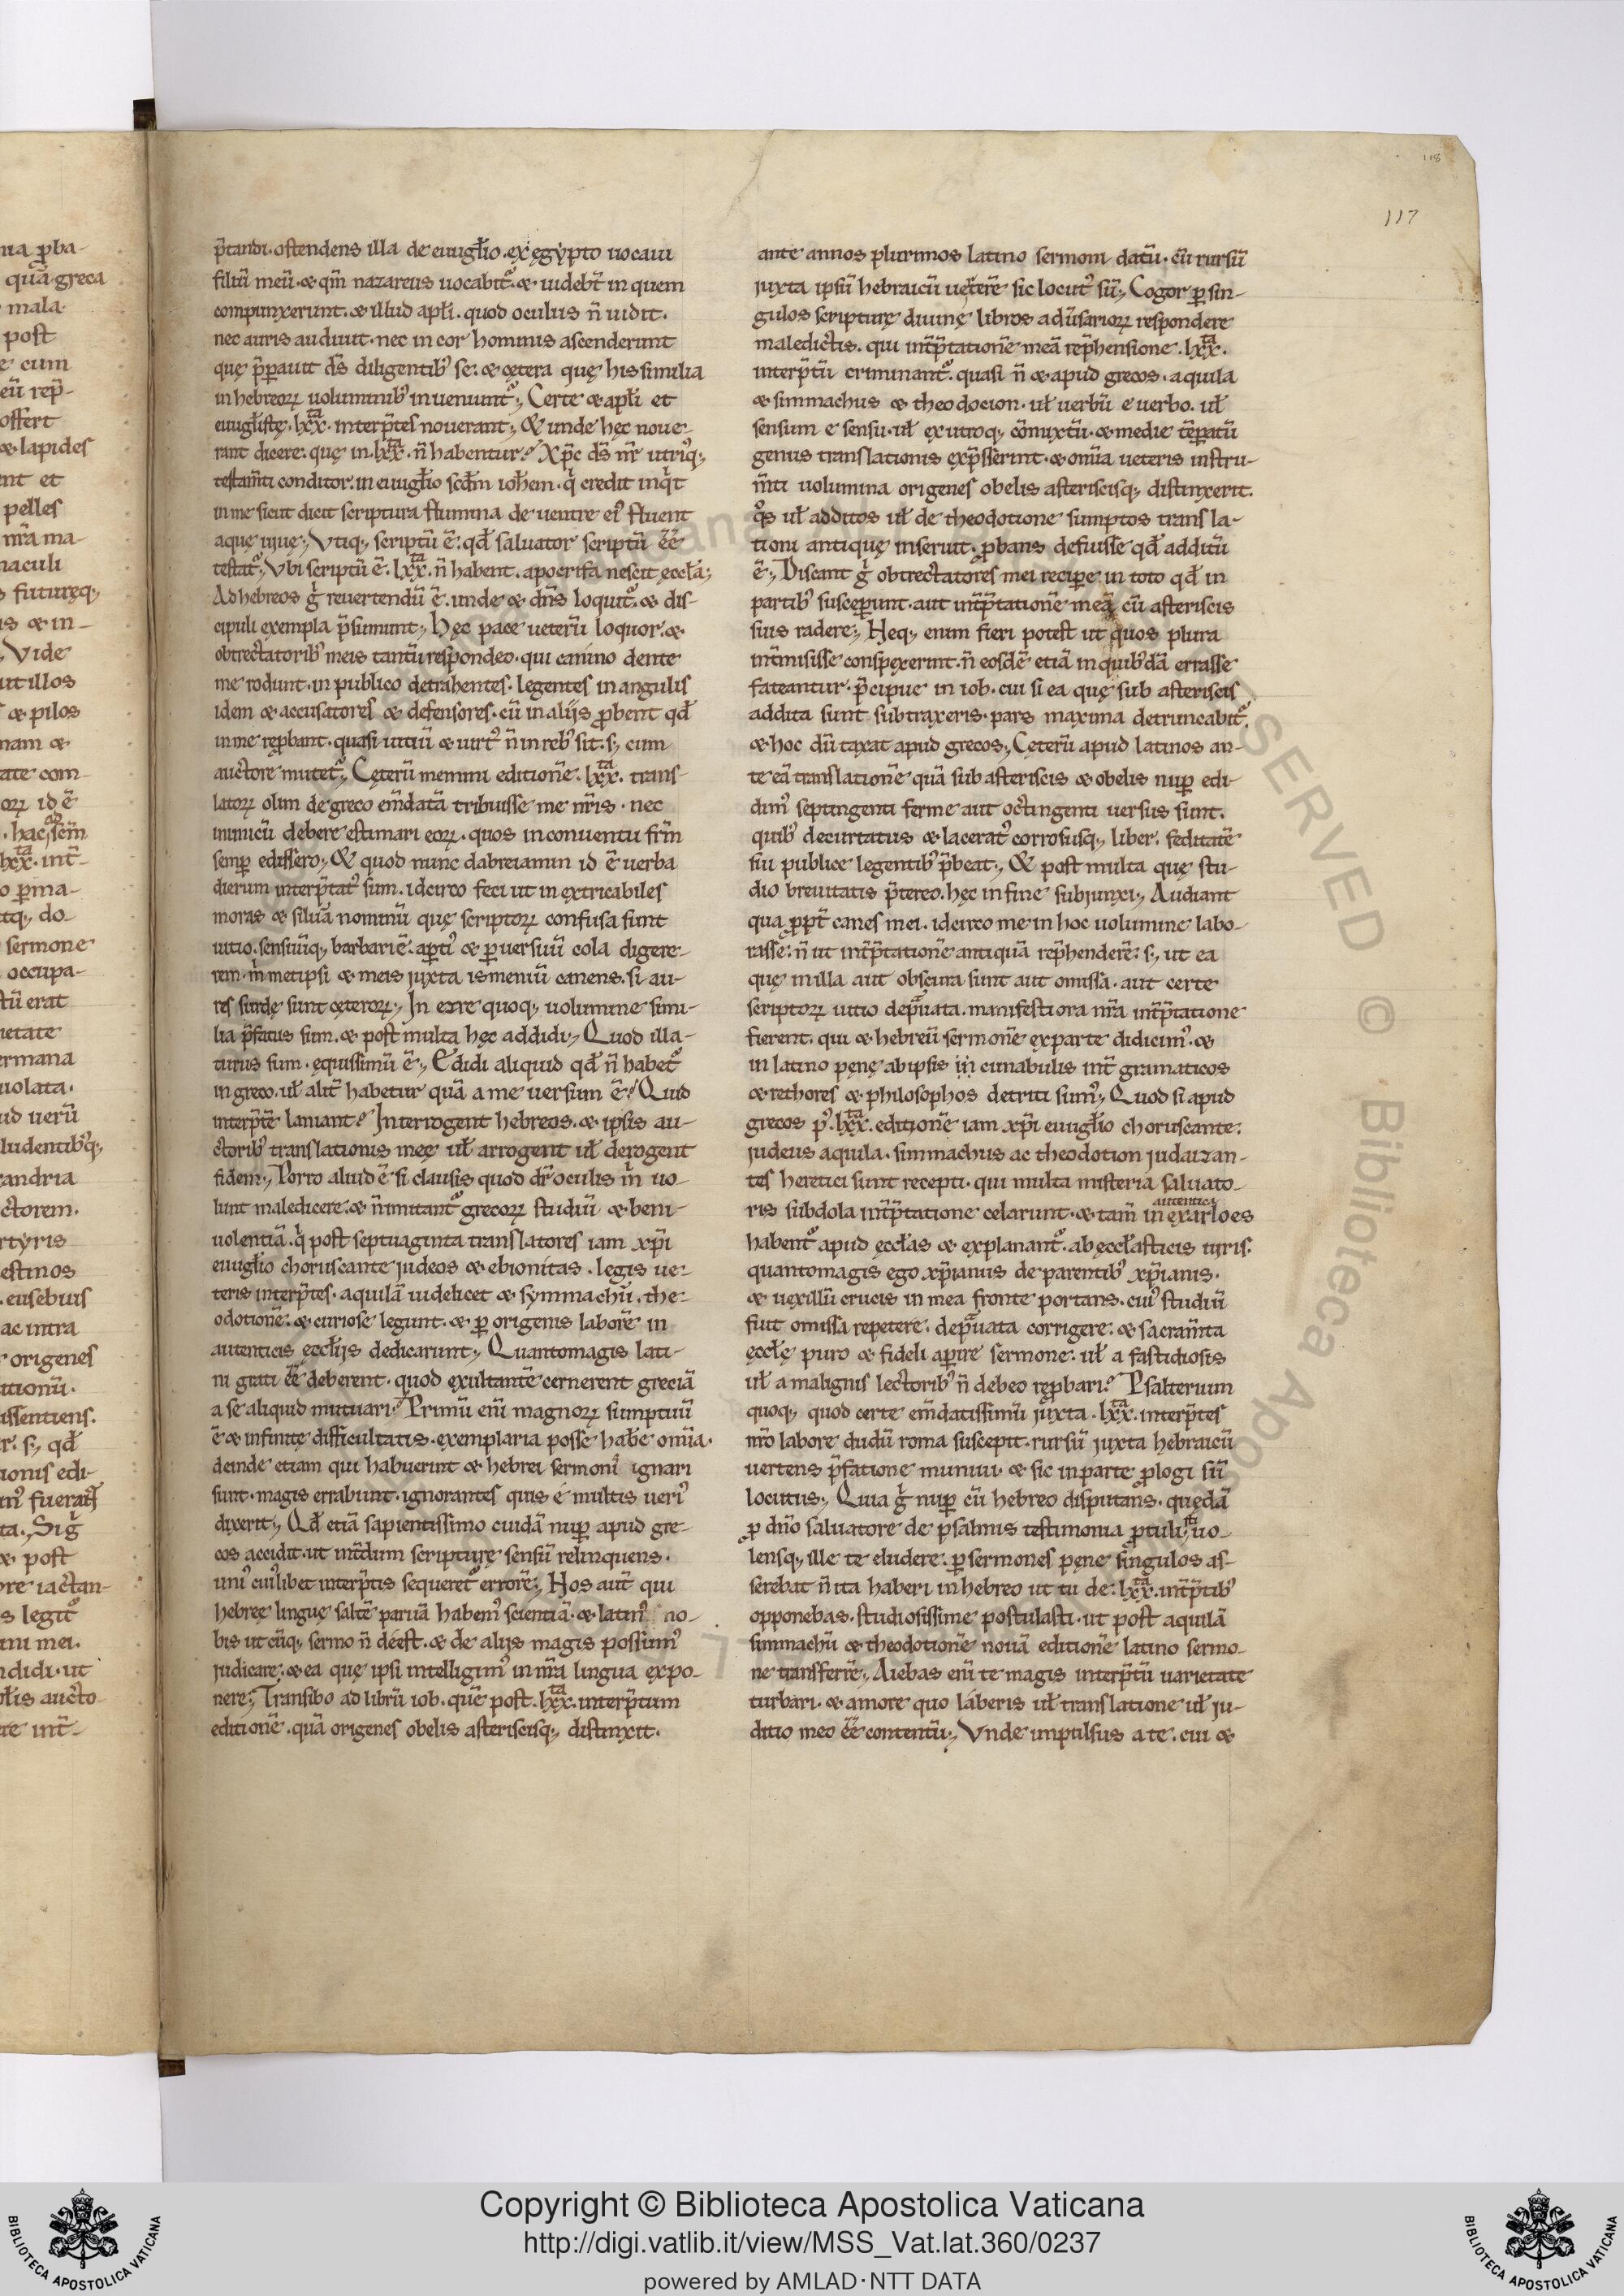 118
117
p̄tandi. ostendens illa de euuglĩo. ex ęgypto uocaui
filiũ meũ. & qm̃ nazareus uocabit᷑. & uidebt̃ in quem
compunxerunt. & illud apl̃i. quod oculus ñ uidit.
nec auris audiuit. nec in cor hominis ascenderunt
quę p̄parauit d̃s diligentib; se. & cętera quę his similia
in hebreoꝝ uoluminib; inueniunt᷑. Certe & apl̃i et
euuglĩstę. lxx^ta. interp̄tes nouerant. & unde hęc noue-
rant dicere. quę in lxx^ta. ñ habentur? Xp̄c d̃s nr̃ utriq;
testam̃ti conditor. in euuglĩo scd̃m ioh̃em. q̇ credit inq̇t
in me sicut dicit scriptura flumina de uentre ei᷒ fluent
aquę uiuę. Vtiq; scriptũ ẽ. qd̃ saluator scriptũ ẽẽ
testat᷑. Vbi scriptũ ẽ. lxx^ta. ñ habent. apocrifa nescit ęccl̃a;
Ad hebreos g̊ reuertendũ ẽ. unde & dñs loquit᷑. & dis-
cipuli exempla p̄sumunt. Hęc pace ueterũ loquor. &
obtrectatorib; meis tantũ respondeo. qui canino dente
me rodunt. in publico detrahentes. legentes in angulis
idem & accusatores & defensores. cũ in alijs ꝓbent qd̃
in me reꝓbant. quasi uitiũ & uirt᷒ ñ in reb; sit. s; cum
auctore mutet᷑. Cęterũ memini editionẽ. lxx^ta. trans-
latoꝝ olim de greco em̃datã tribuisse me nr̃is. nec
inimicũ debere estimari eoꝝ. quos in conuentu fr̃m
semꝑ edissero. & quod nunc dabreiamin id ẽ uerba
dierum interp̄tat᷒ sum. idcirco feci ut in extricabiles
moras & siluã nominũ quę scriptoꝝ confusa sunt
uitio. sensuũq; barbariẽ. aꝑti᷒ & ꝑ uersuũ cola digere-
rem. m̊ metipsi & meis juxta ismeniũ canens. si au-
res surdę sunt ceteroꝝ. In ezre quoq; uolumine simi-
lia p̄fatus sum. & post multa hęc addidi. Quod illa-
turus sum. ęquissimũ ẽ. Edidi aliquid qd̃ ñ habet᷑
in greco. ul̃ alit̃ habetur quã a me uersum ẽ? Quid
interp̄tẽ laniant? Interrogent hebreos. & ipsis au-
ctorib; translationis meę ul̃ arrogent ul̃ derogent
fidem. Porro aliud ẽ si clausis quod dr̃ oculis m̊ uo-
lunt maledicere. & ñ imitant᷑ grecoꝝ studiũ & beni-
uolentiã. q̇ post septuaginta translatores iam xp̄i
euuglĩo choruscante judeos & ebionitas. legis ue-
teris interp̄tes. aquilã uidelicet & symmachũ. the-
odotionẽ. & curiose legunt. & ꝑ origenis laborẽ in
autenticis ęccl̃ijs dedicarunt. Quantomagis lati-
ni grati ẽẽ deberent. quod exultantẽ cernerent greciã
a se aliquid mutuari. Primũ eni᷒ magnoꝝ sumptuũ
ẽ & infinitę difficultatis. exemplaria posse hab̃e om̃ia.
deinde etiam qui habuerint & hebrei sermonis ignari
sunt. magis errabunt. ignorantes quis é multis ueri᷒
dixerit. Qd̃ etiã sapientissimo cuidã nuꝑ apud gre-
cos accidit. ut int̃dum scripturę sensũ relinquens.
uni᷒ cui᷒libet interp̄tis sequeret᷑ errorẽ. Nos aut̃ qui
hebreę linguę saltẽ paruã habem᷒ scientiã. & latin᷒ no-
bis utcũq; sermo ñ deest. & de alijs magis possum᷒
judicare. & ea quę ipsi intelligim᷒ in nr̃a lingua expo-
nere. Transibo ad librũ iob. quẽ post. lxx^ta. interp̄tum
editionẽ. quã origenes obelis asteriscisq; distinxit.
ante annos plurimos latino sermoni datũ. cũ rursũ
juxta ipsũ hebraicũ uerterẽ sic locut᷒ sũ. Cogor ꝑ sin-
gulos scripturę diuinę libros adũsarioꝝ respondere
maledictis. qui int̃p̄tationẽ meã rep̃hensione. lxx^ta.
interp̄tũ criminant᷑. quasi ñ & apud grecos. aquila
& simmachus & theodocion. ul̃ uerbũ e uerbo. ul̃
sensum e sensu. ul̃ ex utroq; cõmixtũ. & medie tẽꝑatũ
genus translationis exp̄sserint. & om̃ia ueteris instru-
m̃ti uolumina origenes obelis asteriscisq; distinxerit.
q̊s ul̃ additos ul̃ de theodotione sumptos transla-
tioni antiquę inseruit. ꝓbans defuisse qd̃ additũ
ẽ. Discant g̊ obtrectatores mei reciꝑe in toto qd̃ in
partib; susceꝑunt. aut int̃p̄tationẽ meã cũ asteriscis
suis radere. Neq; enim fieri potest ut quos plura
int̃misisse conspexerint. ñ eosdẽ etiã in quib;dã errasse
fateantur. p̄cipue in iob. cui si ea quę sub asteriscis
addita sunt subtraxeris. pars maxima detruncabit᷑.
& hoc dũ taxat apud grecos. Cęterũ apud latinos an-
te eã translationẽ quã sub asteriscis & obelis nuꝑ edi-
dim᷒ septingenti ferme aut octingenti uersus sunt.
quib; decurtatus & lacerat᷒ corrosusq; liber. feditatẽ
sui publice legentib; p̄beat. & post multa quę stu-
dio breuitatis p̄tereo. hęc in fine subjunxi. Audiant
qua ꝓpt̃ canes mei. idcirco me in hoc uolumine labo-
rasse. ñ ut int̃p̄tationẽ antiquã rep̃henderẽ. s; ut ea
quę in illa aut obscura sunt aut omissa. aut certe
scriptoꝝ uitio dep̃uata. manifestiora nr̃a int̃p̄tatione
fierent. qui & hebreũ sermonẽ ex parte didicim᷒. &
in latino penę ab ipsis in cunabulis int̃ gramaticos
& rethores & philosophos detriti sum᷒. Quod si apud
grecos p᷒. lxx^ta. editionẽ iam xp̄i euuglĩo choruscante.
judeus aquila. simmachus ac theodotion judaizan-
tes heretici sunt recepti. qui multa misteria saluato-
ris subdola int̃p̄tatione celarunt. & tam̃ in exarloes
autentica
habent᷑ apud ęccl̃as & explanant᷑. ab ęccl̃asticis uiris.
quantomagis ego xp̄ianus de parentib; xp̄ianis.
& uexillũ crucis in mea fronte portans. cui᷒ studiũ
fuit omissa repetere. dep̃uata corrigere. & sacram̃ta
ęccl̃ę puro & fideli aꝑire sermone. ul̃ a fastidiosis
ul̃ a malignis lectorib; ñ debeo reꝓbari? Psalterium
quoq; quod certe em̃datissimũ juxta. lxx^ta. interp̄tes
nr̃o labore dudũ roma suscepit. rursũ juxta hebraicũ
uertens p̄fatione muniui. & sic in parte ꝓlogi sũ
locutus. Quia g̊ nuꝑ cũ hebreo disputans. quędã
ꝓ dño saluatore de psalmis testimonia ꝓtulisti. uo-
lensq; ille te eludere. ꝑ sermones penę singulos as-
serebat ñ ita haberi in hebreo ut tu de. lxx^ta. int̃p̄tib;
opponebas. studiosissime postulasti. ut post aquilã
simmachũ & theodotionẽ nouã editionẽ latino sermo-
ne transferrẽ. Aiebas eni᷒ te magis interp̄tũ uarietate
turbari. & amore quo laberis ul̃ translatione ul̃ ju-
ditio meo ẽẽ contentũ. Vnde impulsus a te. cui &
Copyright © Biblioteca Apostolica Vaticana
http://digi.vatlib.it/view/MSS_Vat.lat.360/0237
powered by AMLAD·NTT DATA
BIBLIOTECA APOSTOLICA VATICANA
BIBLIOTECA APOSTOLICA VATICANA